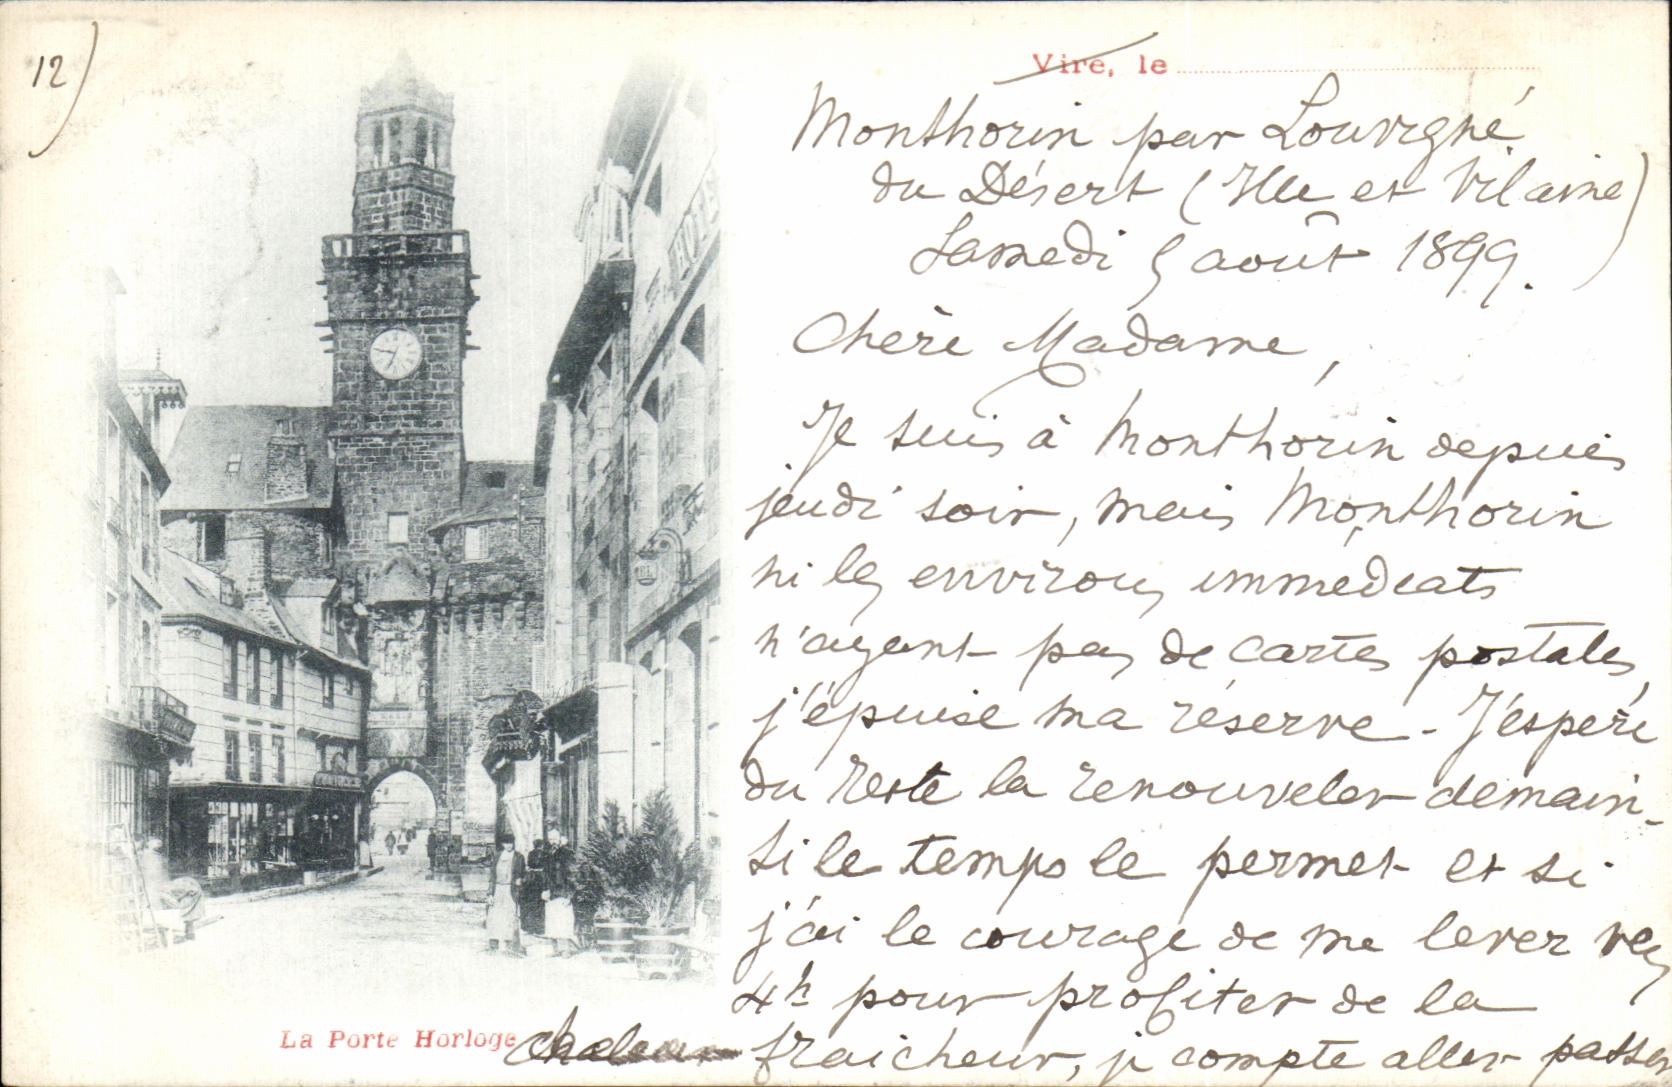 12)
Vire, le
Monthorin par Louvigné
du Désert (Ille et Vilaine)
Samedi 5 août 1899.
Chère Madame,
Je suis à Monthorin depuis
jeudi soir, mais Monthorin
ni les environs immédiats
n'ayant pas de cartes postales,
j'épuise ma réserve - J'espère
du reste la renouveler demain -
si le temps le permet et si
j'ai le courage de me lever vers
4h pour profiter de la
chaleur fraicheur, je compte aller passer
La Porte Horloge
HOTEL